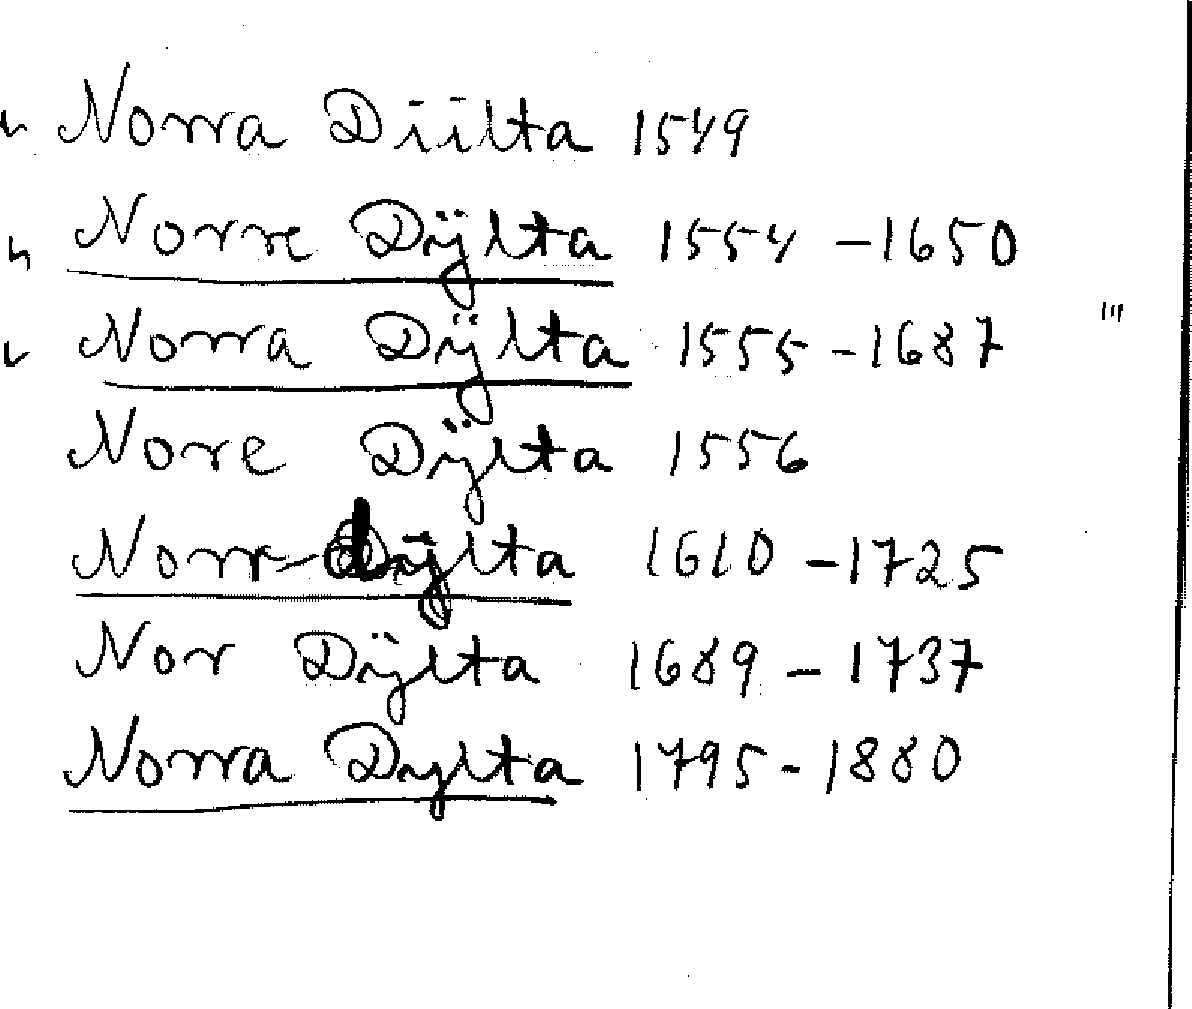 Norra Diilta 1549
Norre Dÿlta 1554 - 1650
Norra Dÿlta 1555 - 1687
Nore Dÿlta 1556
Norr-dÿlta 1610 - 1725
Nor Dÿlta 1689 - 1737
Norra Dylta 1795 - 1880